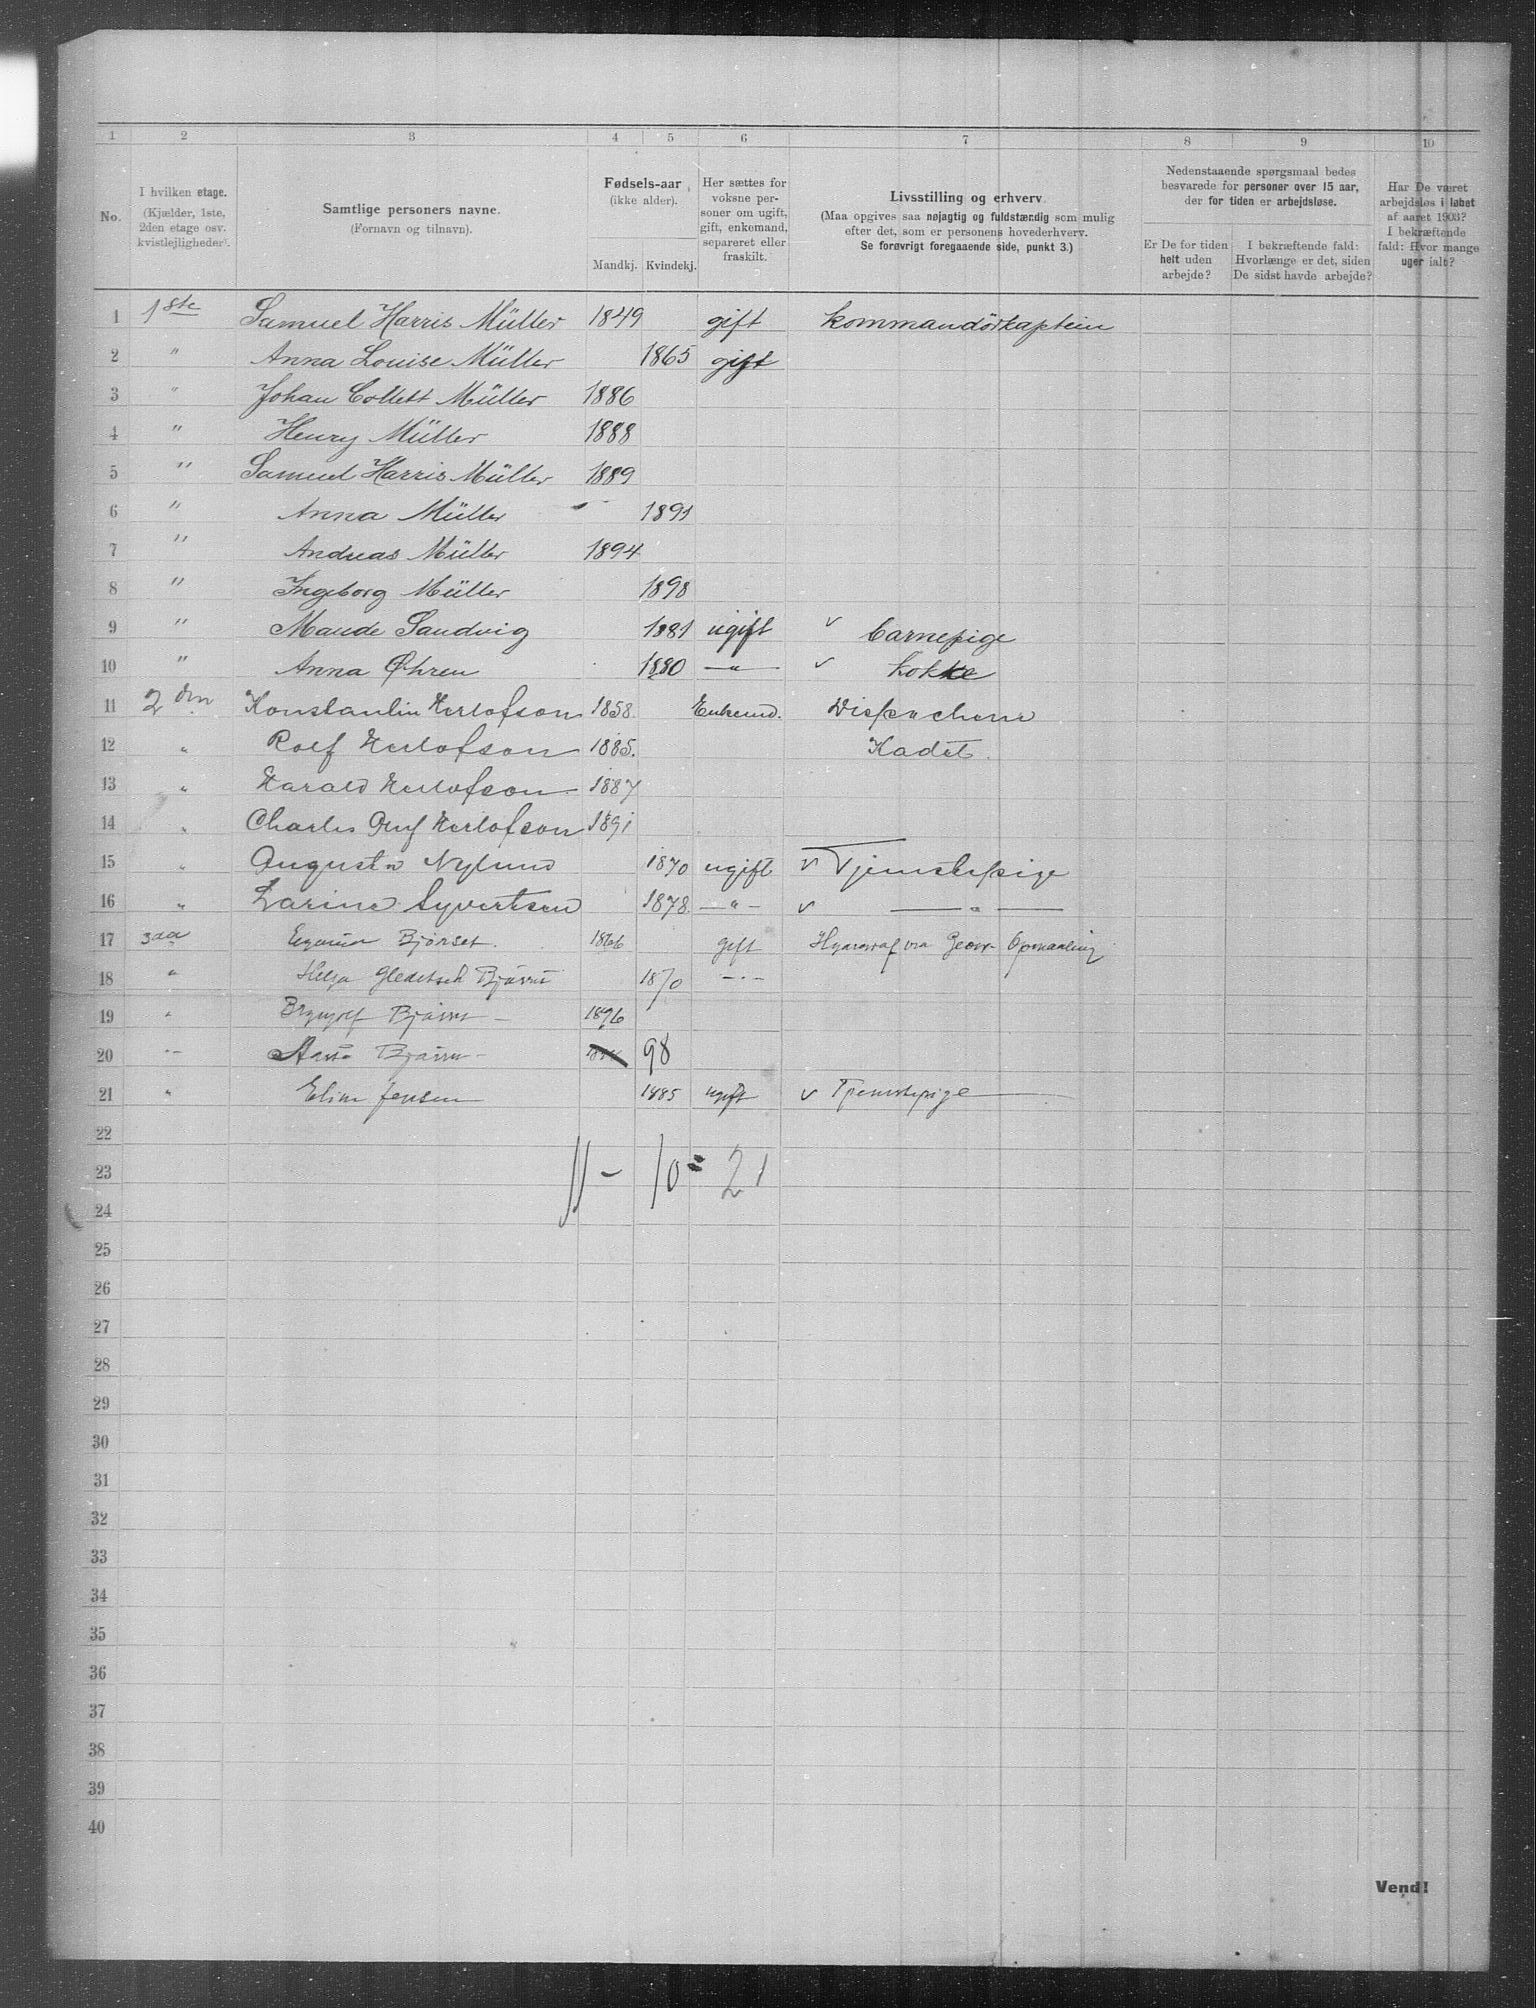 1 2 3 4 5 6 7 8 9 10
No.
I hvilken etage.
(Kjælder, 1ste,
2den etage osv.
kvistleiligheder).
Samtlige personers navne.
(Fornavn og tilnavn).
Fødsels-aar
(ikke alder).
Mandkj. Kvindekj.
Her sættes for
voksne per-
soner om ugift,
gift, enkemand,
separeret eller
fraskilt.
Livsstilling og erhverv.
(Maa opgives saa nøjagtig og fuldstændig som mulig
efter det, som er personens hovederhverv.
Se forøvrigt foregaaende side, punkt 3.)
Nedenstaaende spørgsmaal bedes
besvarede for personer over 15 aar,
der for tiden er arbejdsløse.
Er De for tiden
helt uden
arbejde?
I bekræftende fald:
Hvorlænge er det, siden
De sidst havde arbejde?
Har De været
arbejdsløs i løbet
af aaret 1903?
I bekræftende
fald: Hvor mange
uger ialt?
1 1ste Samuel Harris Müller 1849 gift kommandörkaptein
2 " Anna Louise Müller 1865 gift
3 " Johan Collett Müller 1886
4 " Henry Müller 1888
5 " Samuel Harris Müller 1889
6 " Anna Müller 1891
7 " Andreas Müller 1894
8 " Ingeborg Müller 1898
9 " Maude Sandvig 1881 ugift v barnepige
10 " Anna Öhren 1880 — " — v kokke
11 2den Konstantin Herlofson 1858. Enkemd. Dispachør
12 " Rolf Herlofson 1885. Kadet.
13 " Harald Herlofson 1887
14 " Charles Oluf Herlofson 1891
15 " Augusta Nylund 1870 ugift v Tjenestepige
16 " Larine Syvertsen 1878. — " — v — " —
17 3dia Bjørset. 1866 gift Hydrograf Geogr. Opmaaling
18 " Helga Gleditsch Bjørset 1870 — " —
19 " Brynjolf Bjørset 1896
20 " Aasta Bjørset 98
21 " Eline Jensen 1885 ugift v Tjenestepige
22
23 11 - 10 = 21
24
25
26
27
28
29
30
31
32
33
34
35
36
37
38
39
40
Vend!